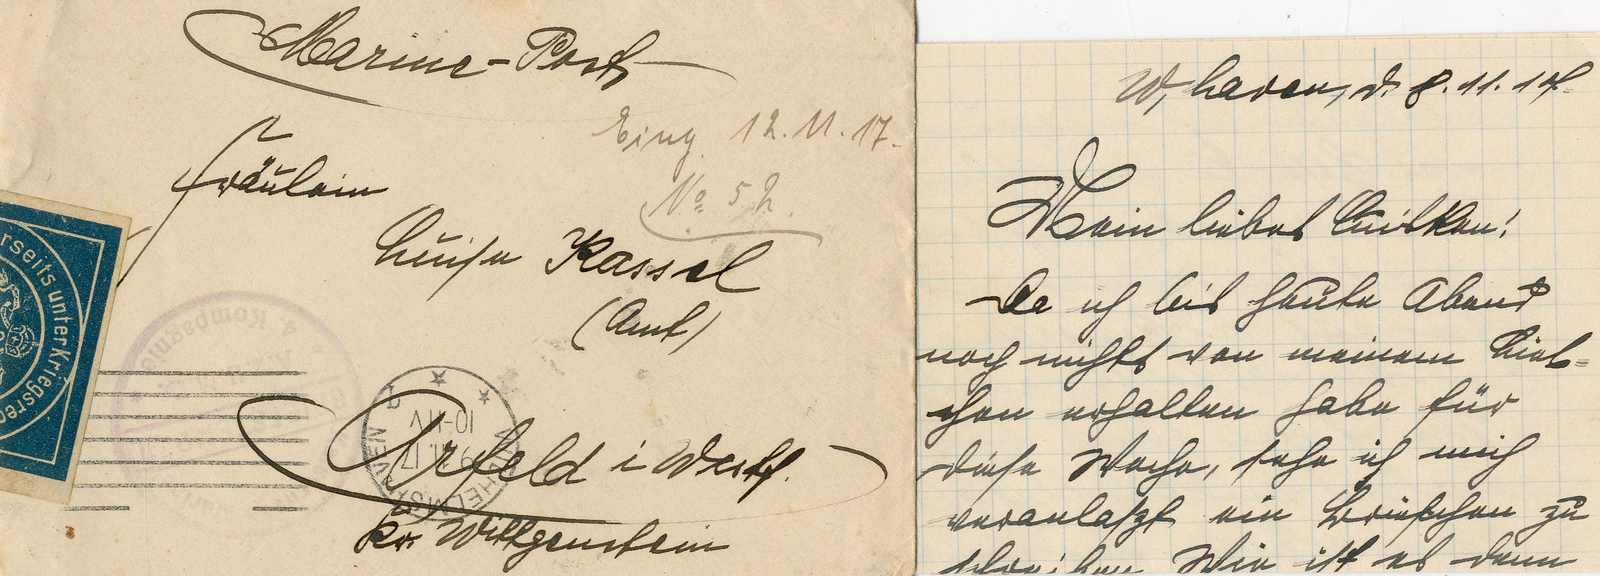 Marine-Post
Eing. 12.11.17.
No 52.
Fräulein
Luise Kassel
(Amt)
Arfeld i Westf.
Kr. Wittgenstein
erseits unter Kriegsrec
4. Kompagnie
WILHELMSHAVEN
9.11.17
10-11 V
W, haven, d. 8.11.17.
Mein liebes Luisken!
Da ich bis heute Abend
noch nichts von meinem Lieb-
chen erhalten habe für
diese Woche, sehe ich mich
veranlaßt ein Briefchen zu
schreiben Wie ist es denn